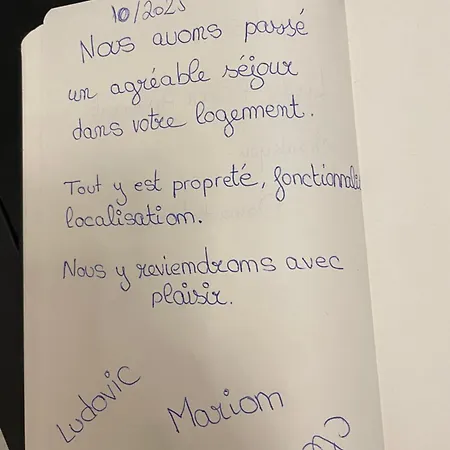 10/2025
Nous avons passé
un agréable séjour
dans votre logement.
Tout y est propreté, fonctionnalit
localisation.
Nous y reviendrons avec
plaisir.
Ludovic
Marion